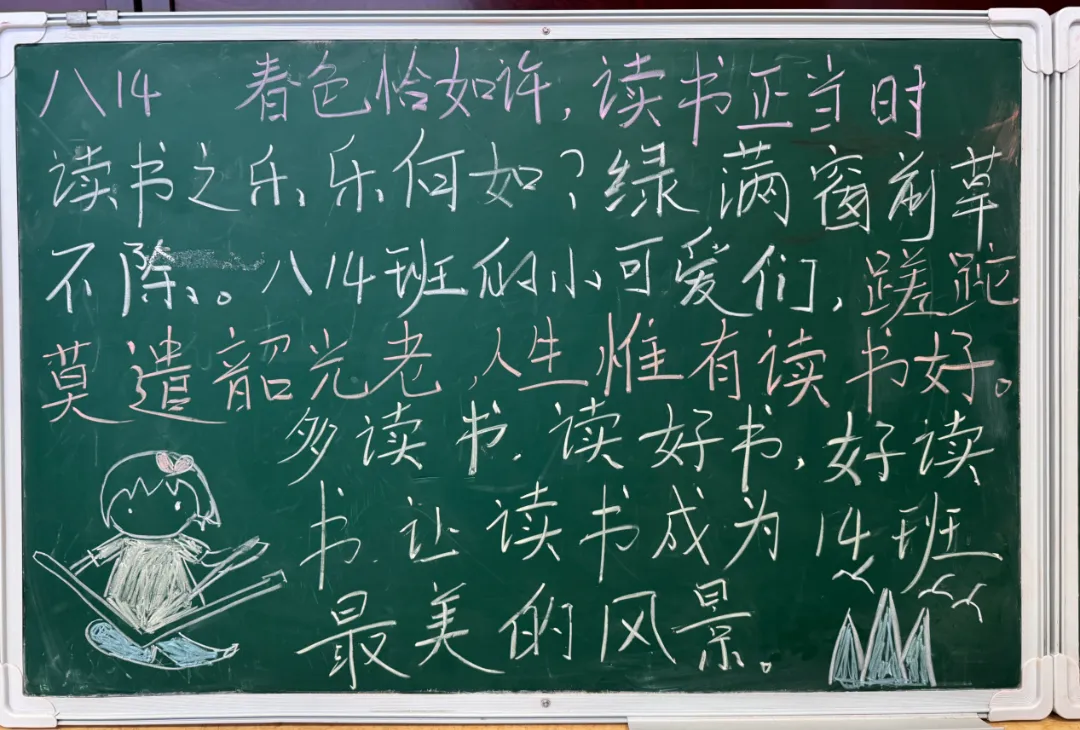 八14 春色恰如许,读书正当时
读书之乐乐何如?绿满窗前草
不除。八14班的小可爱们,蹉跎
莫遣韶光老,人生惟有读书好。
多读书.读好书,好读
书.让读书成为14班
最美的风景。